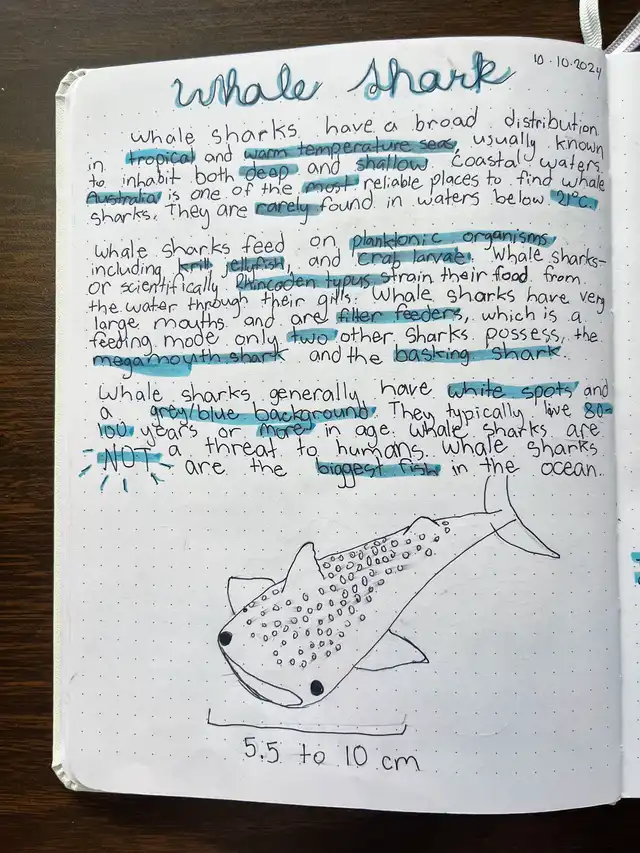 10.10.2024
Whale Shark
Whale sharks have a broad distribution
in tropical and warm temperature seas, usually known
to inhabit both deep and shallow coastal waters.
Australia is one of the most reliable places to find whale
sharks. They are rarely found in waters below 21°C.
Whale sharks feed on planktonic organisms
including krill, jellyfish, and crab larvae. Whale sharks-
or scientifically Rhincoden typus strain their food from
the water through their gills. Whale sharks have very
large mouths and are filter feeders, which is a
feeding mode only two other sharks possess, the
megamouth shark and the basking shark.
Whale sharks generally have white spots and
a grey/blue background. They typically live 80-
100 years or more in age. Whale sharks are
NOT a threat to humans. Whale sharks
are the biggest fish in the ocean.
5.5 to 10 cm